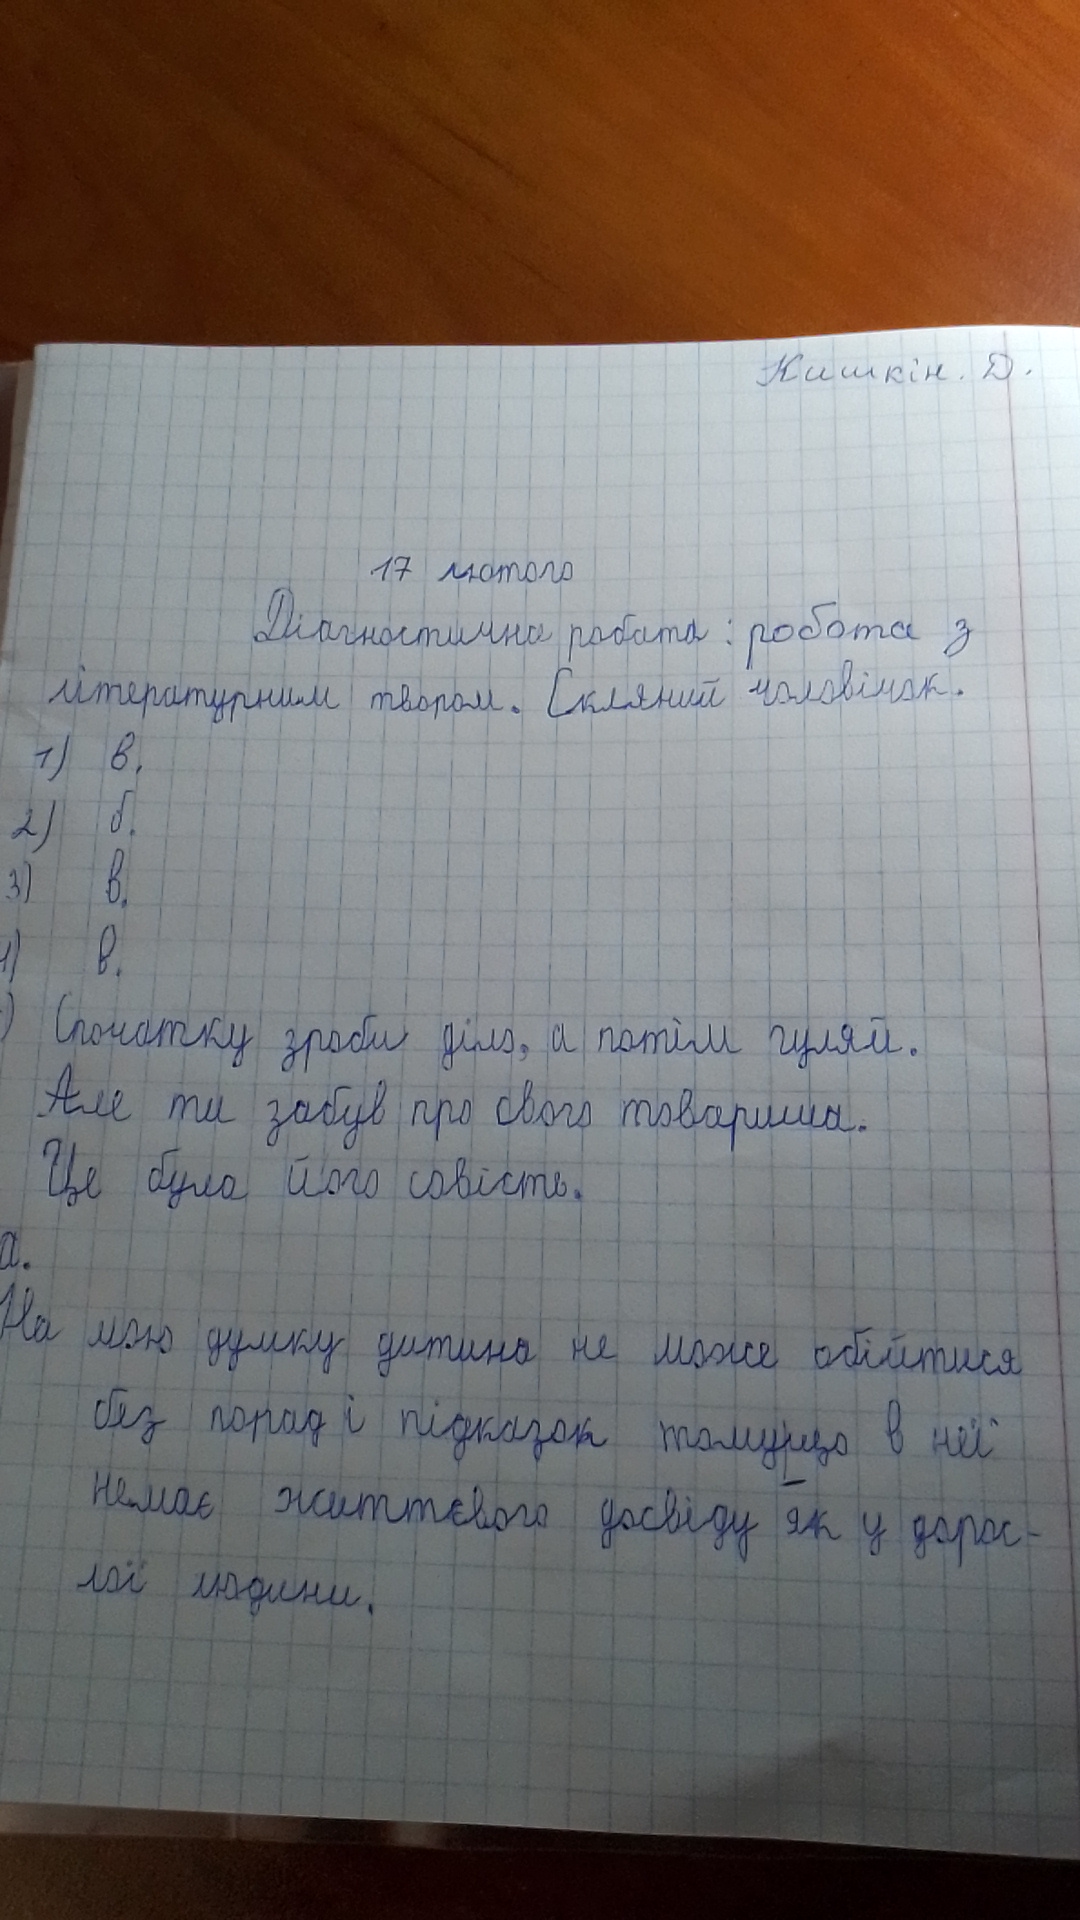 Кишкін. Д.
17 лютого
Діагностична робота: робота з
літературним твором. Скляний чоловічок.
1) в.
2) б.
3) в.
4) в.
) Спочатку зроби діло, а потім гуляй.
Але ти забув про свого товариша.
Це була його совість.
а.
На мою думку дитина не може обійтися
без порад і підказок томущо в неї
немає життєвого досвіду як у дорос-
лої людини.